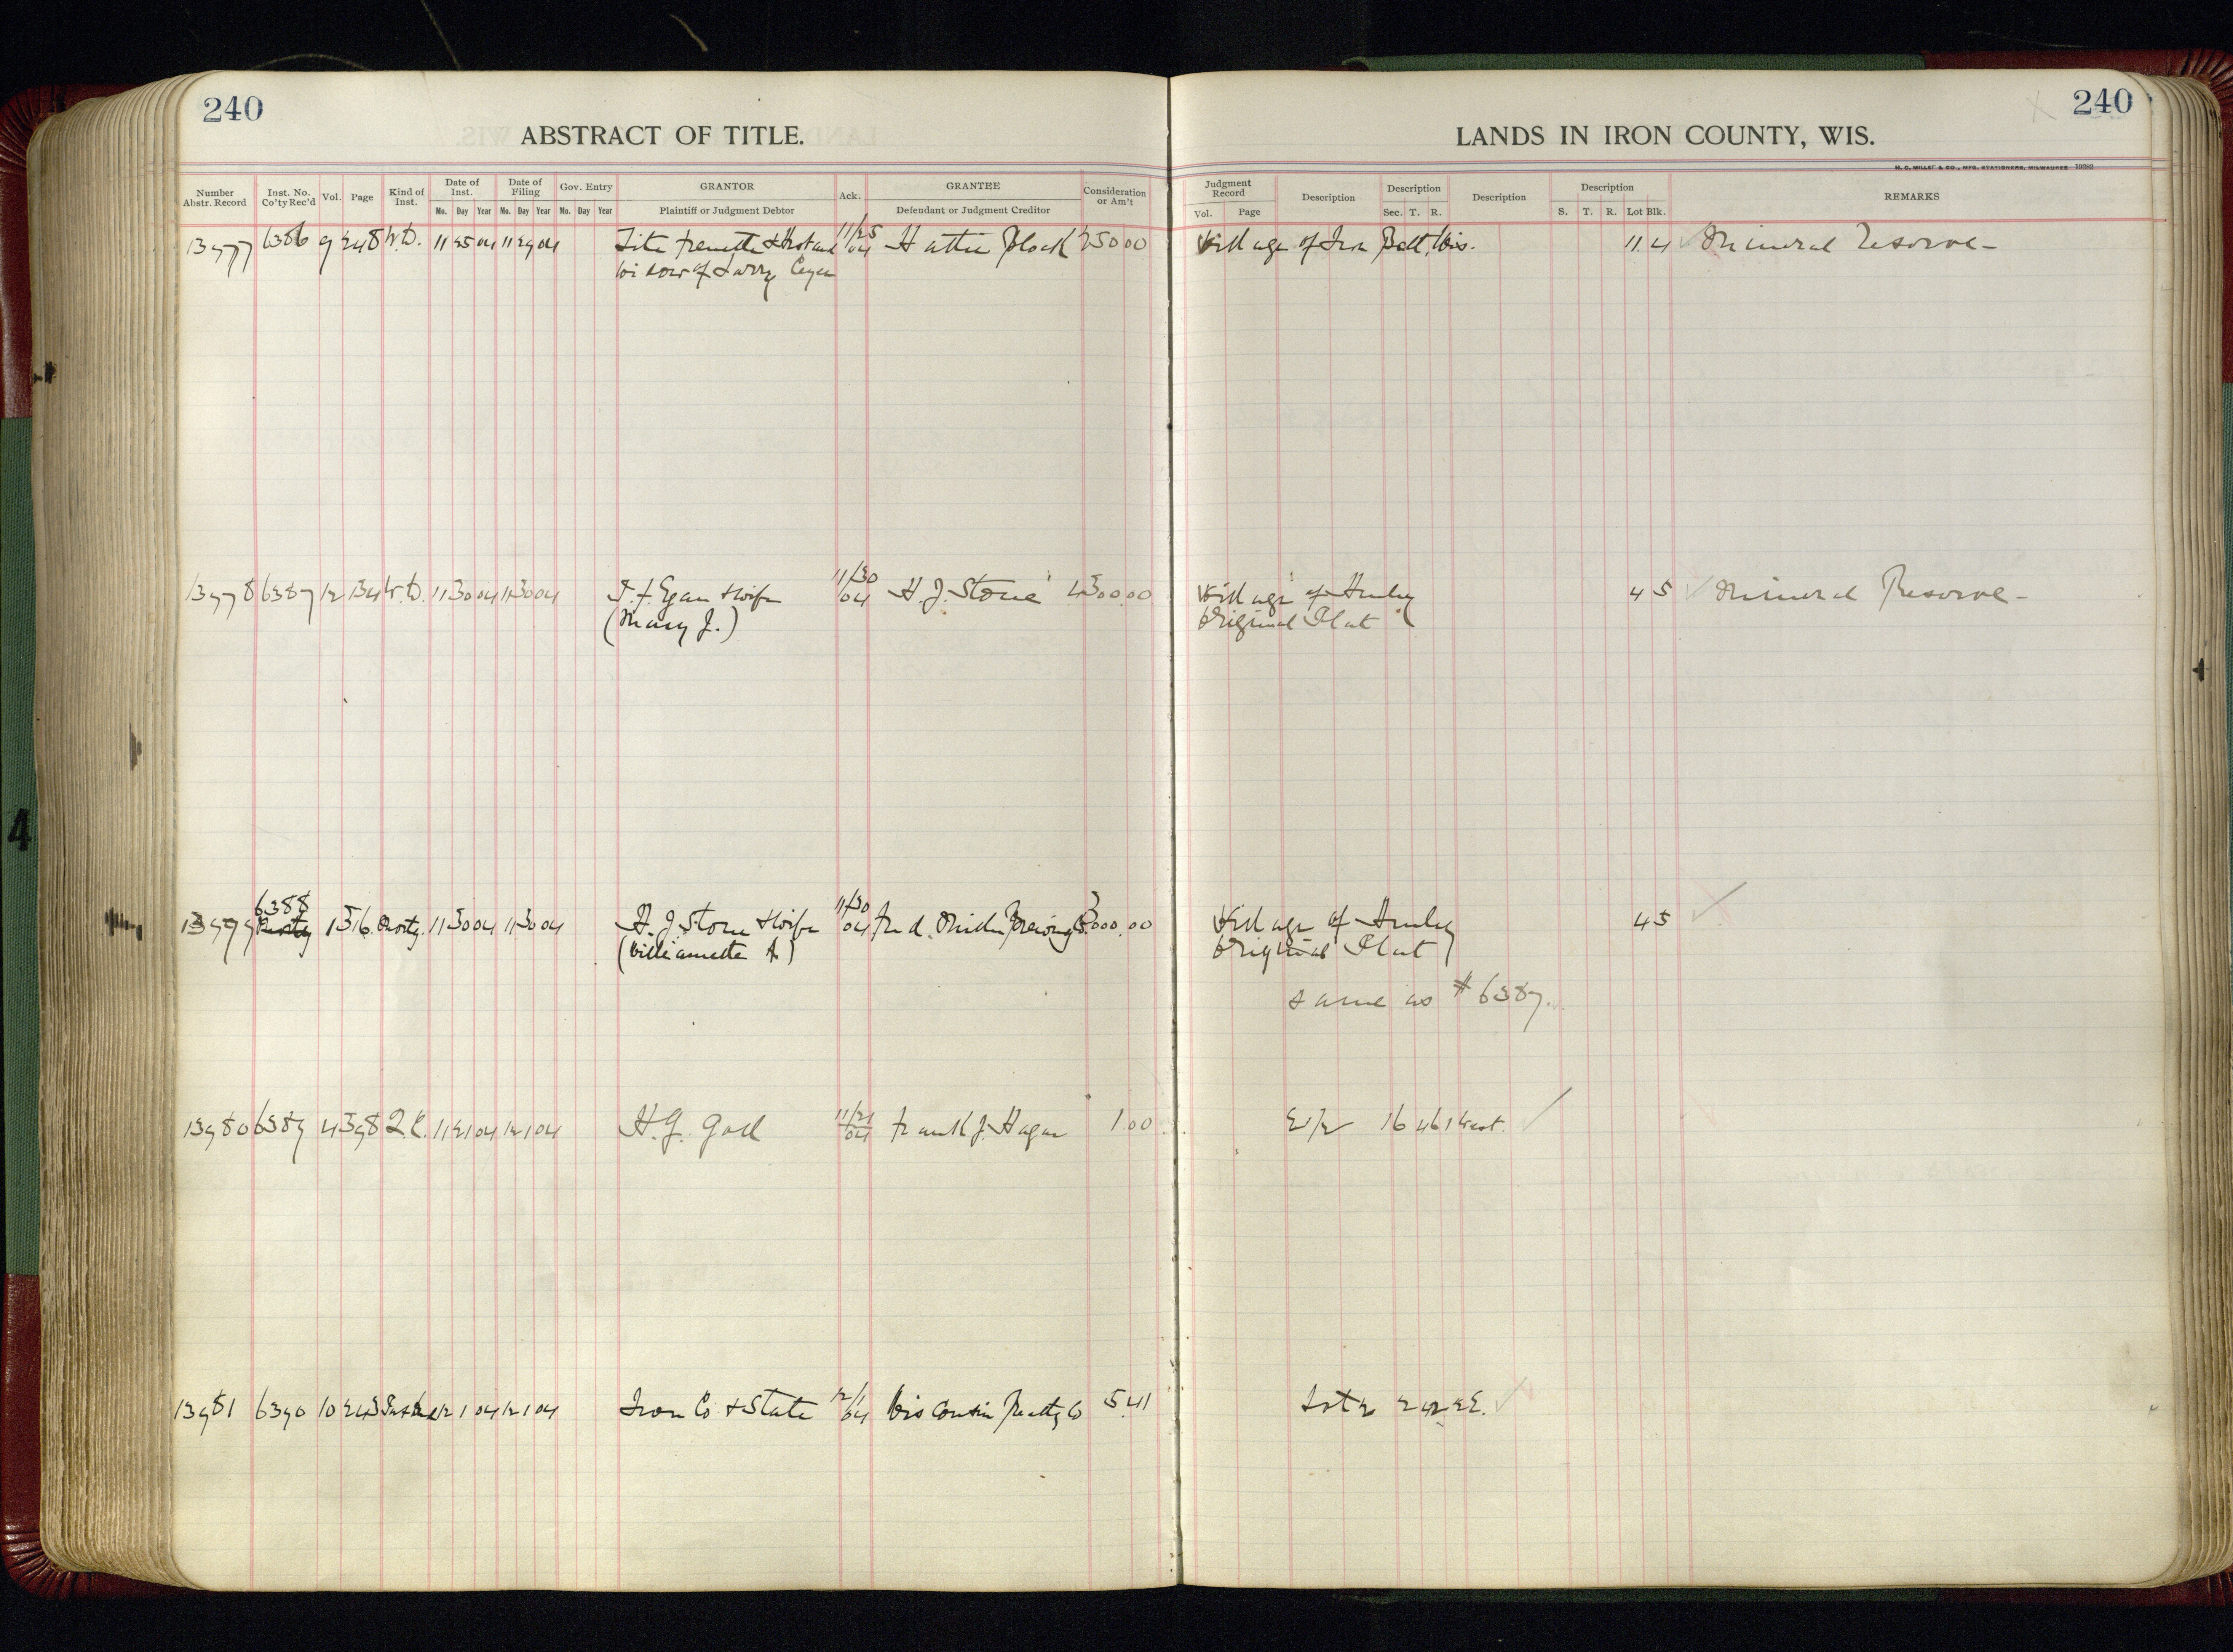 240
ABSTRACT OF TITLE.
Number Abstr. Record
Inst. No. Co'ty Rec'd
Vol.
Page
Kind of Inst.
Date of Inst.
Mo. Day Year
Date of Filing
Mo. Day Year
Gov. Entry
Mo. Day Year
GRANTOR
Plaintiff or Judgment Debtor
Ack.
GRANTEE
Defendant or Judgment Creditor
Consideration or Am't
6386 9 248 W.D. 11 25 04 11 29 04 & Husband 11/25 04 Hattie Block 250 00
widow of Larry
6387 12 134 W.D. 11 30 04 11 30 04 Egan & wife 11/30 04 H. J. Stone 4500.00
(Mary J.)
6388
1 516 Mortg. 11 30 04 11 30 04 H. J. Stone & wife 11/30 04 Fred. Miller Brewing Co. 3000.00
(Williamette A)
13980 6389 4 398 Q.C. 11 21 04 12 1 04 11/21 04 Frank J. Hagan 1.00
13981 6390 10 243 12 1 04 12 1 04 Iron Co & State 12/1 04 Wisconsin Realty Co 5.41
240
LANDS IN IRON COUNTY, WIS.
H. C. MILLER & CO., MFG. STATIONERS, MILWAUKEE
Judgment Record
Vol. Page
Description
Description
Sec. T. R.
Description
Description
S. T. R. Lot Blk.
REMARKS
Village of Iron Belt, Wis. 11 4 Mineral Reserve-
Village of Hurley 4 5 Mineral Reserve-
Original Plat
Village of Hurley 4 5
Original Plat
same as #6387.
E 1/2 16 46 1 West.
Lot 2 2 42 2 E.
4